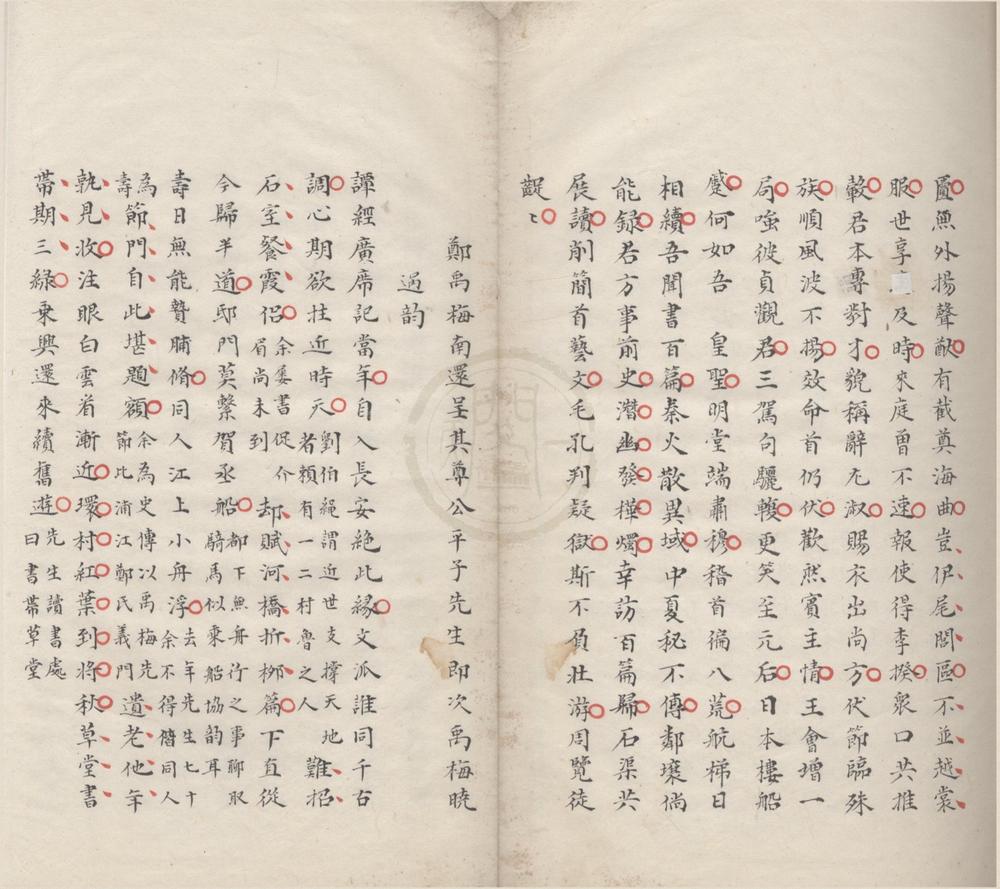 圓魚外揚聲猷有截奠海曲豈伊尾閭區不並越裳
服世享及時來庭曽不速報使得李揆眾口共推
轂君本專對才貌稱辭尤淑賜衣出尚方伏節臨殊
族順風波不揚效命首仍伏歡然賓主情王會增一
局嗤彼貞觀君三駕句驪轅更笑至元后日本樓船
蹙何如吾　皇聖明堂端肅穆稽首徧八荒航梯日
相續吾聞書百篇秦火散異域中夏秘不傳鄰壤倘
能錄君方事前史潛幽發樺燭幸訪百篇歸石渠共
展讀削簡首藝文毛孔判疑獄斯不負壯游周覽徒
齪〻
鄭禹梅南還呈其尊公平子先生即次禹梅曉
過韵
譚經廣席記當年自入長安絶此縁文派誰同千古
調心期欲拄近時天劉伯繩謂近世支撐天地者賴有一二村魯之人難招
石室餐霞侶余屡書促介眉尚未到却賦河橋折柳篇下直從
今歸半道邸門莫繫賀丞船都下無舟行之事聊取騎馬似乘船協韵耳
壽日無能贊脯脩同人江上小舟浮去年先生七十余不得偕同人
為壽節門自此堪題額余為史傳以禹梅先節比浦江鄭氏義門遺老他年
執見收注眼白雲看漸近環村紅葉到將秋草堂書
帶期三緑乗興還來續舊遊先生讀書處曰書帶草堂